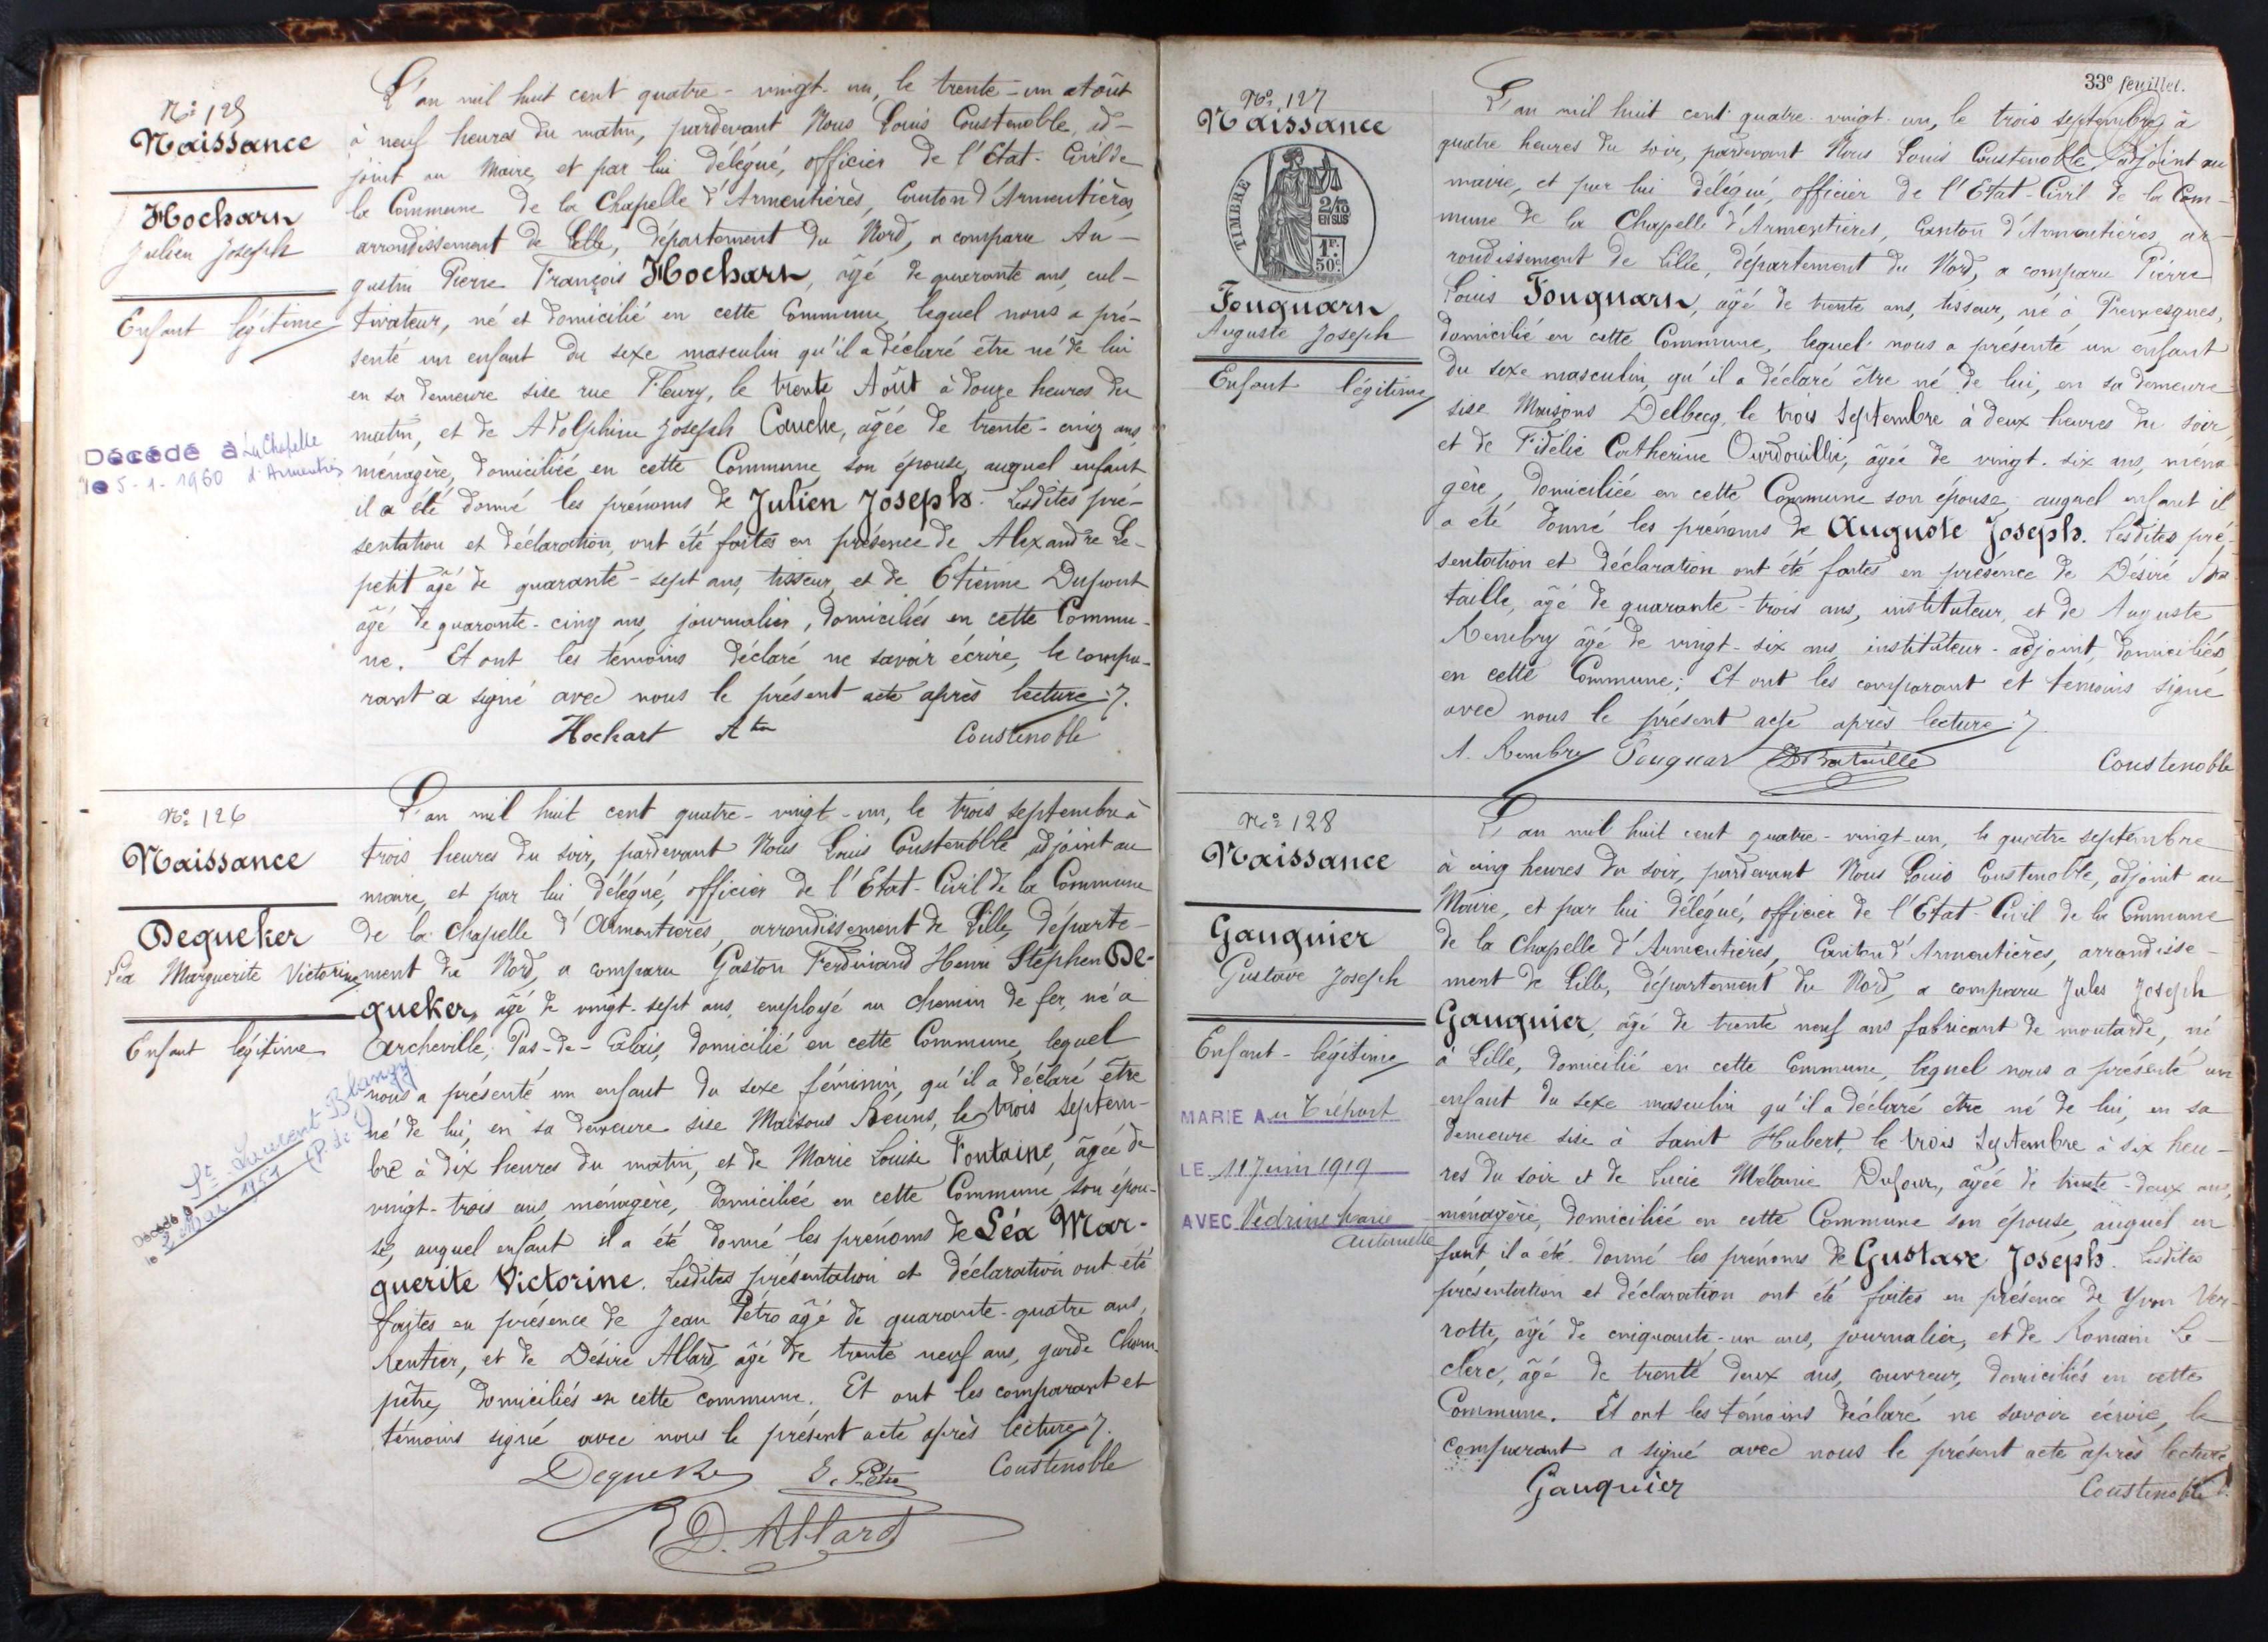 N° 125
Naissance
Hocharn
Julien Joseph
Enfant légitime
Décédé à La Chapelle
d'Armentières
le 5-1-1960
L'an mil huit cent quatre-vingt-un, le trente-un Août
à neuf heures du matin, pardevant Nous Louis Coustenoble, ad-
joint au Maire, et par lui délégué, officier de l'Etat-Civil de
la Commune de la Chapelle d'Armentières, Canton d'Armentières,
arrondissement de Lille, département du Nord, a comparu Au-
gustin Pierre François Hocharn, âgé de quarante ans, cul-
tivateur, né et domicilié en cette Commune, lequel nous a pré-
senté un enfant du sexe masculin qu'il a déclaré être né de lui
en sa demeure sise rue Fleury, le trente Août à douze heures du
matin, et de Adolphine Joseph Cauche, âgée de trente-cinq ans,
ménagère, domiciliée en cette Commune, son épouse, auquel enfant
il a été donné les prénoms de Julien Joseph. Lesdites pré-
sentation et déclaration, ont été faites en présence de Alexandre Le-
petit âgé de quarante-sept ans, tisseur, et de Etienne Dupont
âgé de quarante-cinq ans, journalier, domiciliés en cette Commu-
ne. Et ont les témoins déclaré ne savoir écrire, le compa-
rant a signé avec nous le présent acte après lecture.
Hochart Atin Coustenoble
N° 126
Naissance
Dequeker
Léa Marguerite Victorine
Enfant légitime
Décédé à St Laurent Blangy
(P. de C)
le 2 Mai 1951
L'an mil huit cent quatre-vingt-un, le trois septembre à
trois heures du soir, pardevant Nous Louis Coustenoble adjoint au
maire, et par lui délégué, officier de l'Etat-Civil de la Commune
de la Chapelle d'Armentières, arrondissement de Lille, départe-
ment du Nord, a comparu Gaston Ferdinand Henri Stéphen De-
queker, âgé de vingt-sept ans, employé au chemin de fer, né à
Archeville, Pas-de-Calais, domicilié en cette Commune, lequel
nous a présenté un enfant du sexe féminin, qu'il a déclaré être
né de lui, en sa demeure sise Maisons Beuns, le trois septem-
bre à dix heures du matin, et de Marie Louise Fontaine, âgée de
vingt-trois ans, ménagère, domiciliée en cette Commune, son épou-
se, auquel enfant il a été donné les prénoms de Léa Mar-
guerite Victorine. Lesdites présentation et déclaration ont été
faites en présence de Jean Pétro âgé de quarante-quatre ans,
Rentier, et de Désiré Allard, âgé de trente neuf ans, garde cham-
pêtre, domiciliés en cette commune. Et ont les comparant et
témoins signé avec nous le présent acte après lecture.
Dequeker Coustenoble
D. Allard
33e feuillet.
N° 127
Naissance
TIMBRE
2/10
EN SUS
1F.
50c.
Fouquarn
Auguste Joseph
Enfant légitime
L'an mil huit cent quatre-vingt-un, le trois septembre, à
quatre heures du soir, pardevant Nous Louis Coustenoble, adjoint au
maire, et par lui délégué, officier de l'Etat-Civil de la Com-
mune de la Chapelle d'Armentières, Canton d'Armentières, ar-
rondissement de Lille, département du Nord, a comparu Pierre
Louis Fouquarn, âgé de trente ans, tisseur, né à Premesques,
domicilié en cette Commune, lequel nous a présenté un enfant
du sexe masculin, qu'il a déclaré être né de lui, en sa demeure
sise Maisons Delbecq, le trois Septembre à deux heures du soir,
et de Fidélie Catherine Ourdouillié, âgée de vingt-six ans, ména-
gère, domiciliée en cette Commune son épouse, auquel enfant il
a été donné les prénoms de Auguste Joseph. Lesdites pré-
sentation et déclaration ont été faites en présence de Désiré Ba-
taille, âgé de quarante-trois ans, instituteur, et de Auguste
Rembry âgé de vingt-six ans, instituteur-adjoint, domiciliés
en cette Commune; Et ont les comparant et témoins signé
avec nous le présent acte après lecture.
A. Rembry Fouquar D Bataille Coustenoble
N° 128
Naissance
Gauquier
Gustave Joseph
Enfant-légitime
MARIE A au Tréport
LE 11 Juin 1919
AVEC Vedrine Marie
Antoinette
L'an mil huit cent quatre-vingt-un, le quatre septembre
à cinq heures du soir, pardevant Nous Louis Coustenoble, adjoint au
Maire, et par lui délégué, officier de l'Etat-Civil de la Commune
de la Chapelle d'Armentières, Canton d'Armentières, arrondisse-
ment de Lille, département du Nord, a comparu Jules Joseph
Gauquier, âgé de trente neuf ans fabricant de moutarde, né
à Lille, domicilié en cette Commune, lequel nous a présenté un
enfant du sexe masculin qu'il a déclaré être né de lui, en sa
demeure sise à Saint Hubert, le trois Septembre à six heu-
res du soir et de Lucie Mélanie Dufour, âgée de trente-deux ans,
ménagère, domiciliée en cette Commune son épouse, auquel en
fant, il a été donné les prénoms de Gustave Joseph. Lesdites
présentation et déclaration ont été faites en présence de Yvon Ver-
rotte, âgé de cinquante-un ans, journalier, et de Romain Le-
clerc, âgé de trente deux ans, couvreur, domiciliés en cette
Commune. Et ont les témoins déclaré ne savoir écrire, le
comparant a signé avec nous le présent acte après lecture
Gauquier Coustenoble